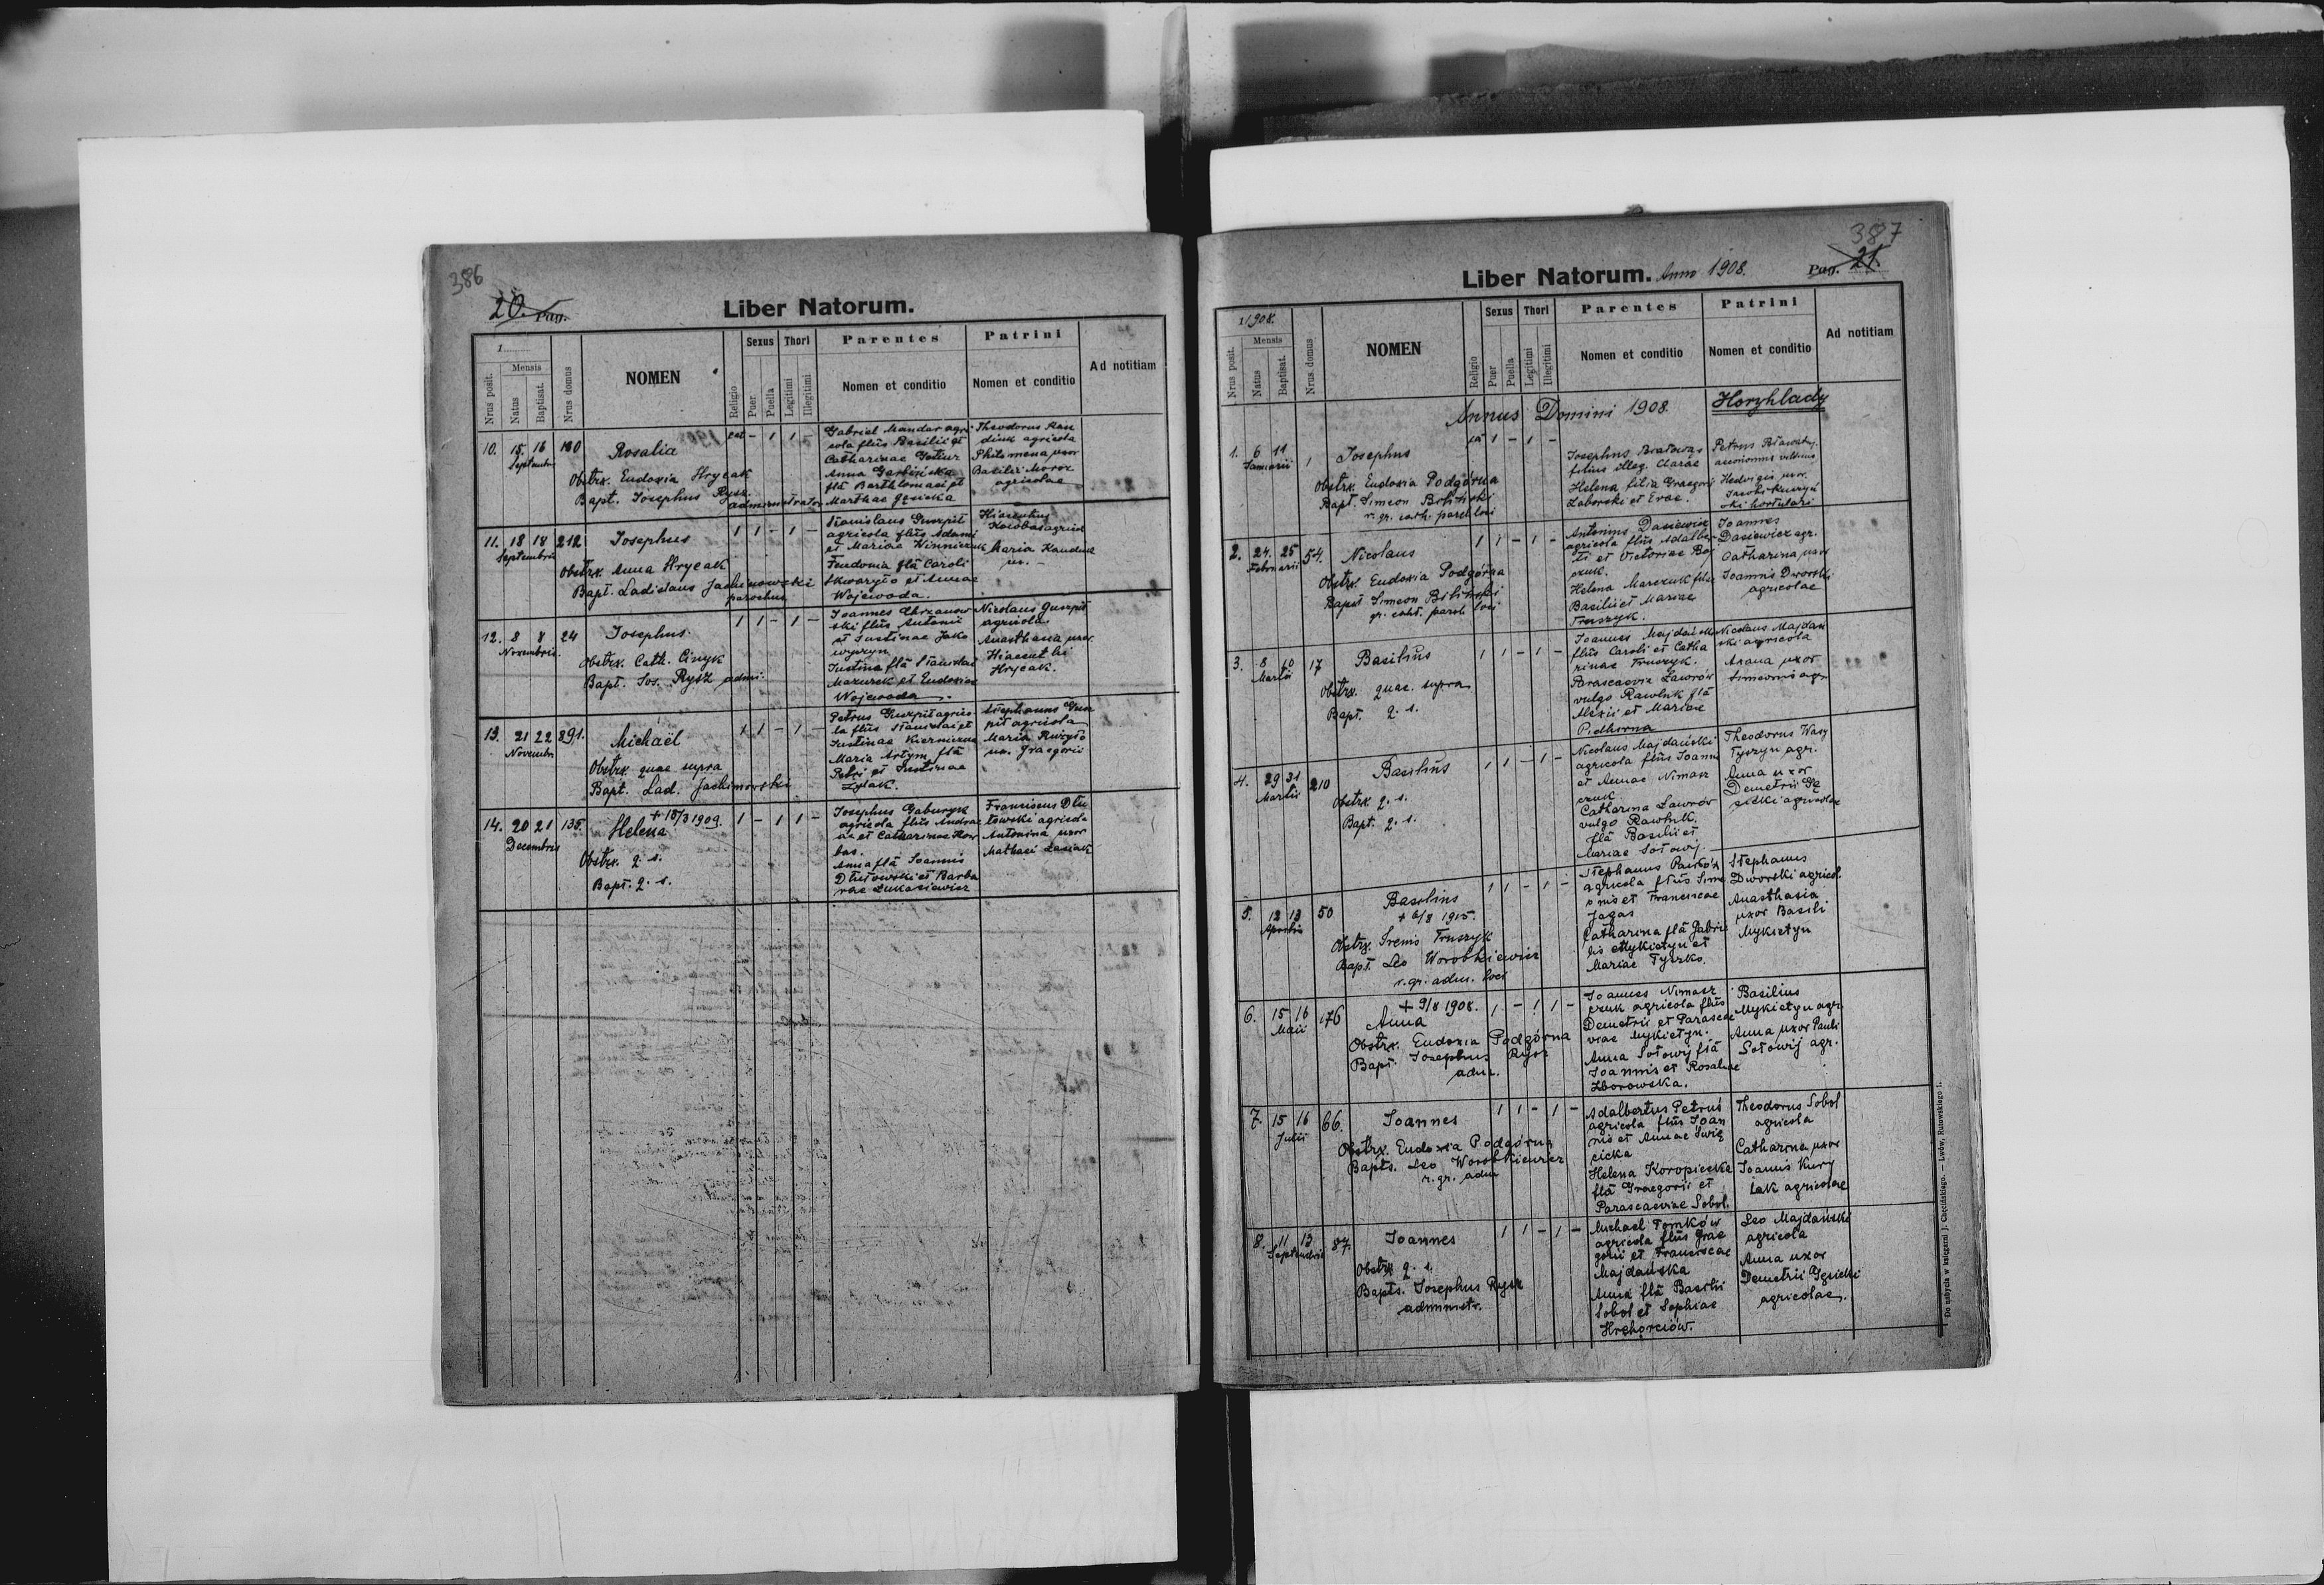 386
20. Pag.
Liber Natorum.
1
Nrus posit.
Mensis
Natus
Baptisat.
Nrus domus
NOMEN
Religio
Sexus
Puer
Puella
Thori
Legitimi
Illegitimi
Parentes
Nomen et conditio
Patrini
Nomen et conditio
Ad notitiam
10. 15. 16 180 Rosalia
Septembr
Obstrx. Eudoxia Hrycak
Bapt. Josephus Rysz
administrator
Gabriel Mandar agri
cola flius Basilii et
Catharinae
Anna
fla Barthlomaei et
Marthae Gęsicka
Theodorus
agricola
Philomena uxor
Basilii Moroz
agricolae
11. 18 18 212 Josephus 1 1 - 1 -
Septembris
Obstrx. Anna Hrycak
Bapt. Ladislaus Jachimowski
parochus
Stanislaus Guszpit
agricola flius Adami
et Mariae Winniczuk
fla Caroli
Skwaryło et Annae
Wojewoda.
Hiacenthus
Maria
ux. -
12. 8 8 24 Josephus. 1 1 - 1 -
Novembris.
Obstrx. Cath. Cinyk
Bapt. Jos. Rysz admi.
Joannes Chrzanow
ski flius Antonii
et Justinae Jako
wyszyn
Justina fla Stanislai
Mazurek et Eudoxiae
Wojewoda.
Nicolaus Guszpit
agricola
Anasthasia uxor
Hiacenthi
Hrycak.
13. 21 22 391. Michaël 1 1 - 1 -
Novembr
Obstrx. quae supra
Bapt. Lad. Jachimowski
Petrus Guszpit agrico
la flius Stanislai et
Justinae
Maria Artym fla
Petri et Justinae
Żylak.
Stephanus Gusz
pit agricola
Maria
ux. Graegorii
14. 20 21 135. + 15/3 1909. 1 - 1 1 -
Decembris Helena
Obstrx. q. s.
Bapt. q. s.
Josephus Gaburyk
agricola flius Andre
ae et Catharinae Kow
bas.
Anna fla Joannis
Dłutowski et Barba
rae Łukasiewicz
Franciscus Dłu
towski agricola
Antonina uxor
Mathaei Lasiak
387
Liber Natorum. Anno 1908.
Pag. 21.
1/908.
Nrus posit.
Mensis
Natus
Baptisat.
Nrus domus
NOMEN
Religio
Sexus
Puer
Puella
Thori
Legitimi
Illegitimi
Parentes
Nomen et conditio
Patrini
Nomen et conditio
Ad notitiam
Annus Domini 1908. Horyhlady
1. 6 11 1 Josephus 1 - 1 -
Januarii
Obstrx. Eudoxia Podgórna
Bapt. Simeon Biliński
r. gr. cath. paroch loci
Josephus
filius illeg. Clarae
Helena filia Graegorii
Zaborski et Evae.
Petrus
Hedvigis uxor
Jacobi
ski hortulani
2. 24. 25 54. Nicolaus 1 1 - 1 -
Februarii
Obstrx. Eudoxia Podgórna
Bapt Simeon Biliński
gr. cath. paroch loci
Antonius Dasiewicz
agricola flius Adalber
ti et Victoriae Boj
czuk.
Helena Marczuk filia
Basilii et Mariae
Truszyk.
Joannes
Dasiewicz agr.
Catharina uxor
Joannis Dworski
agricolae
3. 8 10 17 Basilius 1 1 - 1 -
Martii
Obstrx. quae. supra
Bapt. q. s.
Joannes Majdański
flius Caroli et Catha
rinae Truszyk.
Parascevia Ławrów
vulgo Rawluk fla
Alexii et Mariae
Podhorna
Nicolaus Majdań
ski agricola
Anna uxor
Simeonis agr.
4. 29 31 210 Basilius 1 1 - 1 -
Martii
Obstrx. q. s.
Bapt. q. s.
Nicolaus Majdański
agricola flius Joannis
et Annae Nimasz
czuk
Catharina Ławrów
vulgo Rawluk.
fla Basilii et
Mariae Sołowij.
Theodorus Wasy
tyszyn agr.
Anna uxor
Demetrii Gę
sicki agricolae
5. 12 13 50 Basilius 1 1 - 1 -
Aprilis + 6/8 1915.
Obstrx. Irenis Truszyk
Bapt. Leo Worobkiewicz
r. gr. adm. loci
Stephanus Pawków
agricola flius Sime
onis et Franciscae
Jagas
Catharina fla Gabrie
lis Mykietyn et
Mariae Tyszko.
Stephanus
Dworski agricol.
Anasthasia
uxor Basili
Mykietyn
6. 15 16 176 + 9/8 1908. 1 - 1 1 -
Maii Anna
Obstrx. Eudoxia Podgórna
Bapt. Josephus Rysz
adm.
Joannes Nimasz
czuk agricola flius
Demetrii et Parasce
viae Mykietyn.
Anna Sołowij fla
Joannis et Rosaliae
Zborowska.
Basilius
Mykietyn agr.
Anna uxor Pauli
Sołowij agr.
7. 15 16 66. Joannes 1 1 - 1 -
Julii
Obstrx. Eudoxia Podgórna
Bapts. Leo Worobkiewicz
r. gr. adm
Adalbertus Petruś
agricola flius Joan
nis et Annae Świę
cicka
Helena Koropiecka
fla Graegorii et
Parasceviae Sobol.
Theodorus Sobol
agricola
Catharina uxor
Joannis Kury
lak agricolae
8. 11 13 87. Joannes 1 1 - 1 -
Septembris
Obstrx q. s.
Bapts. Josephus Rysz
administr.
Michael Tomków
agricola flius Grae
gorii et Franciscae
Majdańska
Anna fla Basilii
Sobol et Sophiae
Hryhorciów.
Leo Majdański
agricola
Anna uxor
Demetrii Gęsicki
agricolae.
Do nabycia w księgarni J. Chęcińskiego. — Lwów, Rutowskiego 1.